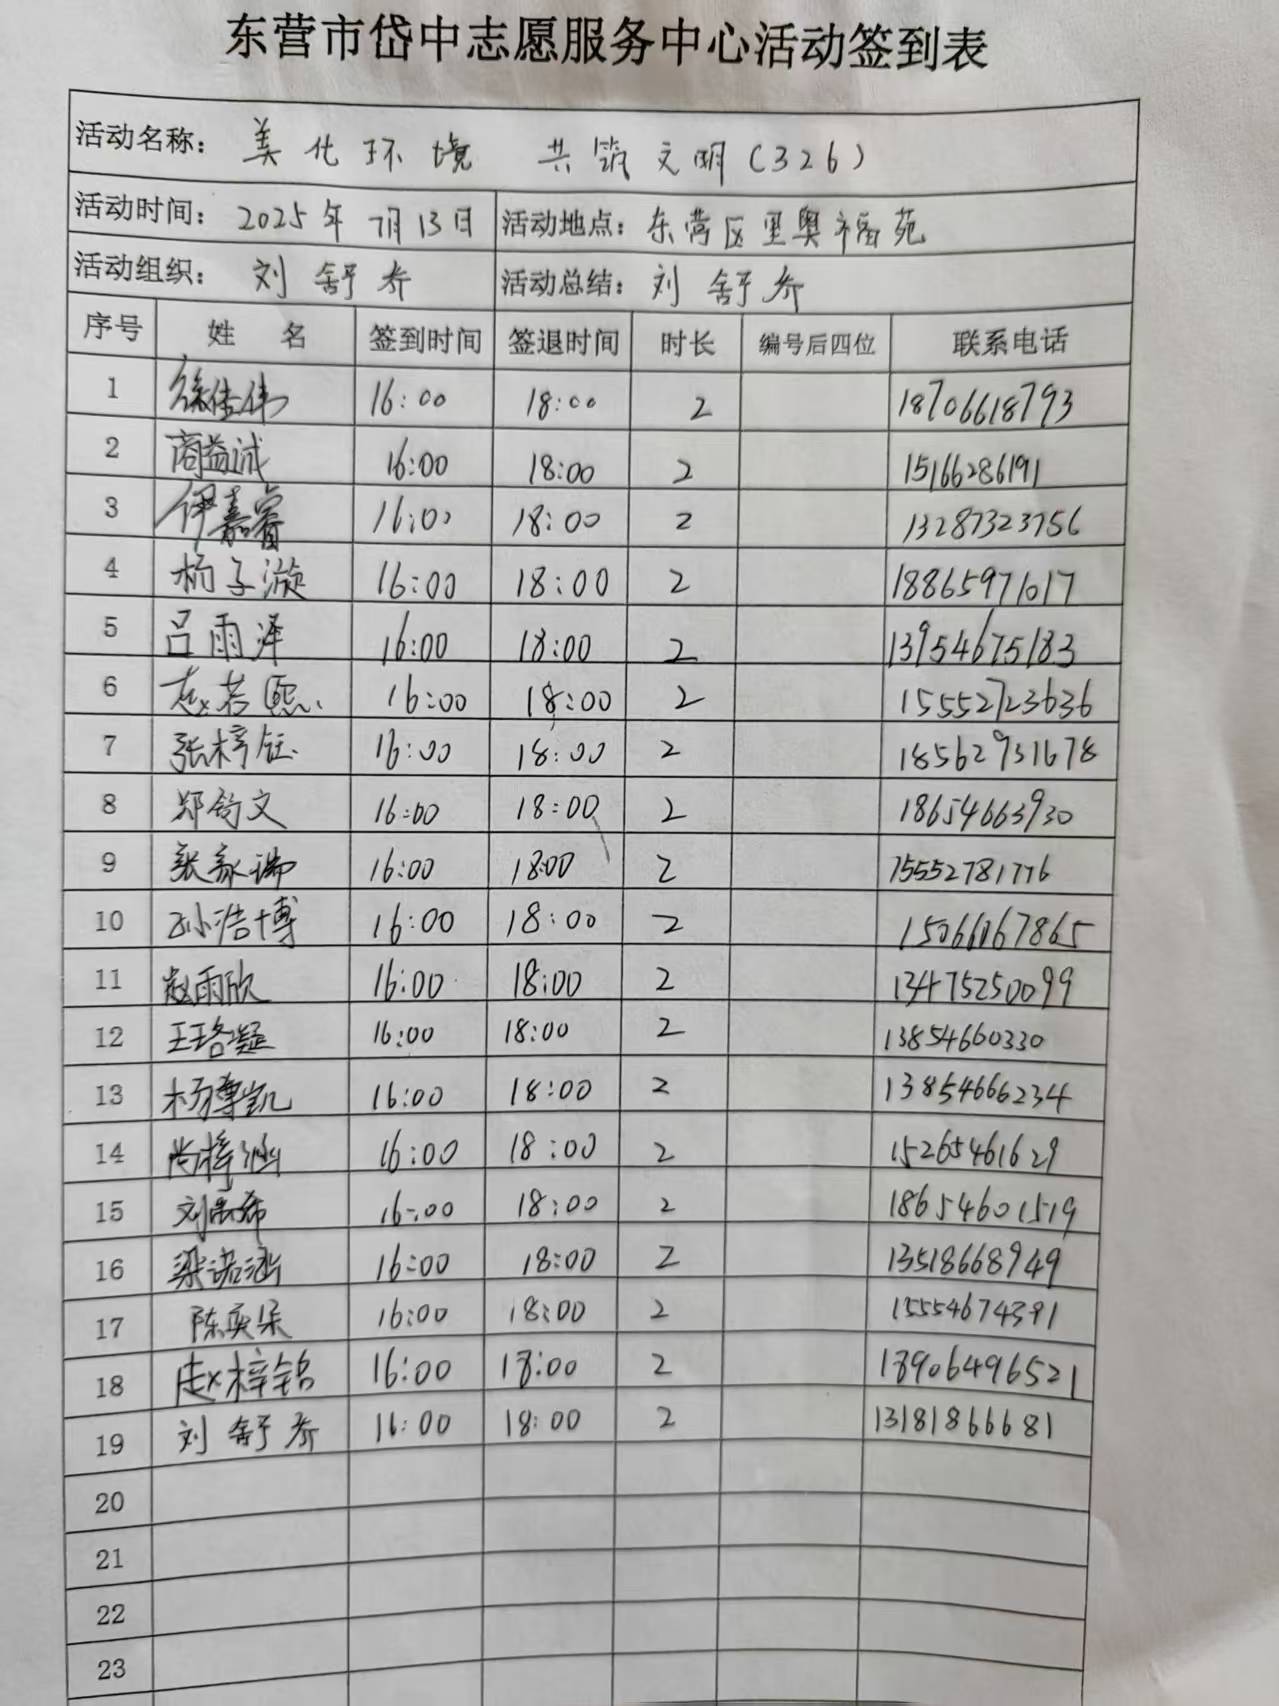 东营市岱中志愿服务中心活动签到表
活动名称： 美化环境 共筑文明(326)
活动时间： 2025年7月13日 活动地点：东营区里奥福苑
活动组织： 刘舒乔 活动总结： 刘舒乔
序号 姓 名 签到时间 签退时间 时长 编号后四位 联系电话
1 徐佳伟 16:00 18:00 2 18706618793
2 商益诚 16:00 18:00 2 15166286191
3 伊嘉睿 16:00 18:00 2 13287323756
4 杨子漩 16:00 18:00 2 18865971017
5 吕雨泽 16:00 18:00 2 13954675183
6 赵若熙 16:00 18:00 2 15552723636
7 张梓钰 16:00 18:00 2 18562931678
8 郑舒文 16:00 18:00 2 18654663930
9 张家瑞 16:00 18:00 2 15552781776
10 孙浩博 16:00 18:00 2 15066067865
11 赵雨欣 16:00 18:00 2 13475250099
12 王珞凝 16:00 18:00 2 13854660330
13 杨博凯 16:00 18:00 2 13854666234
14 尚梓涵 16:00 18:00 2 15265461629
15 16:00 18:00 2 18654601519
16 梁诺涵 16:00 18:00 2 13518668949
17 陈奕朵 16:00 18:00 2 15554674391
18 赵梓铭 16:00 18:00 2 18906496521
19 刘舒乔 16:00 18:00 2 13181866681
20
21
22
23